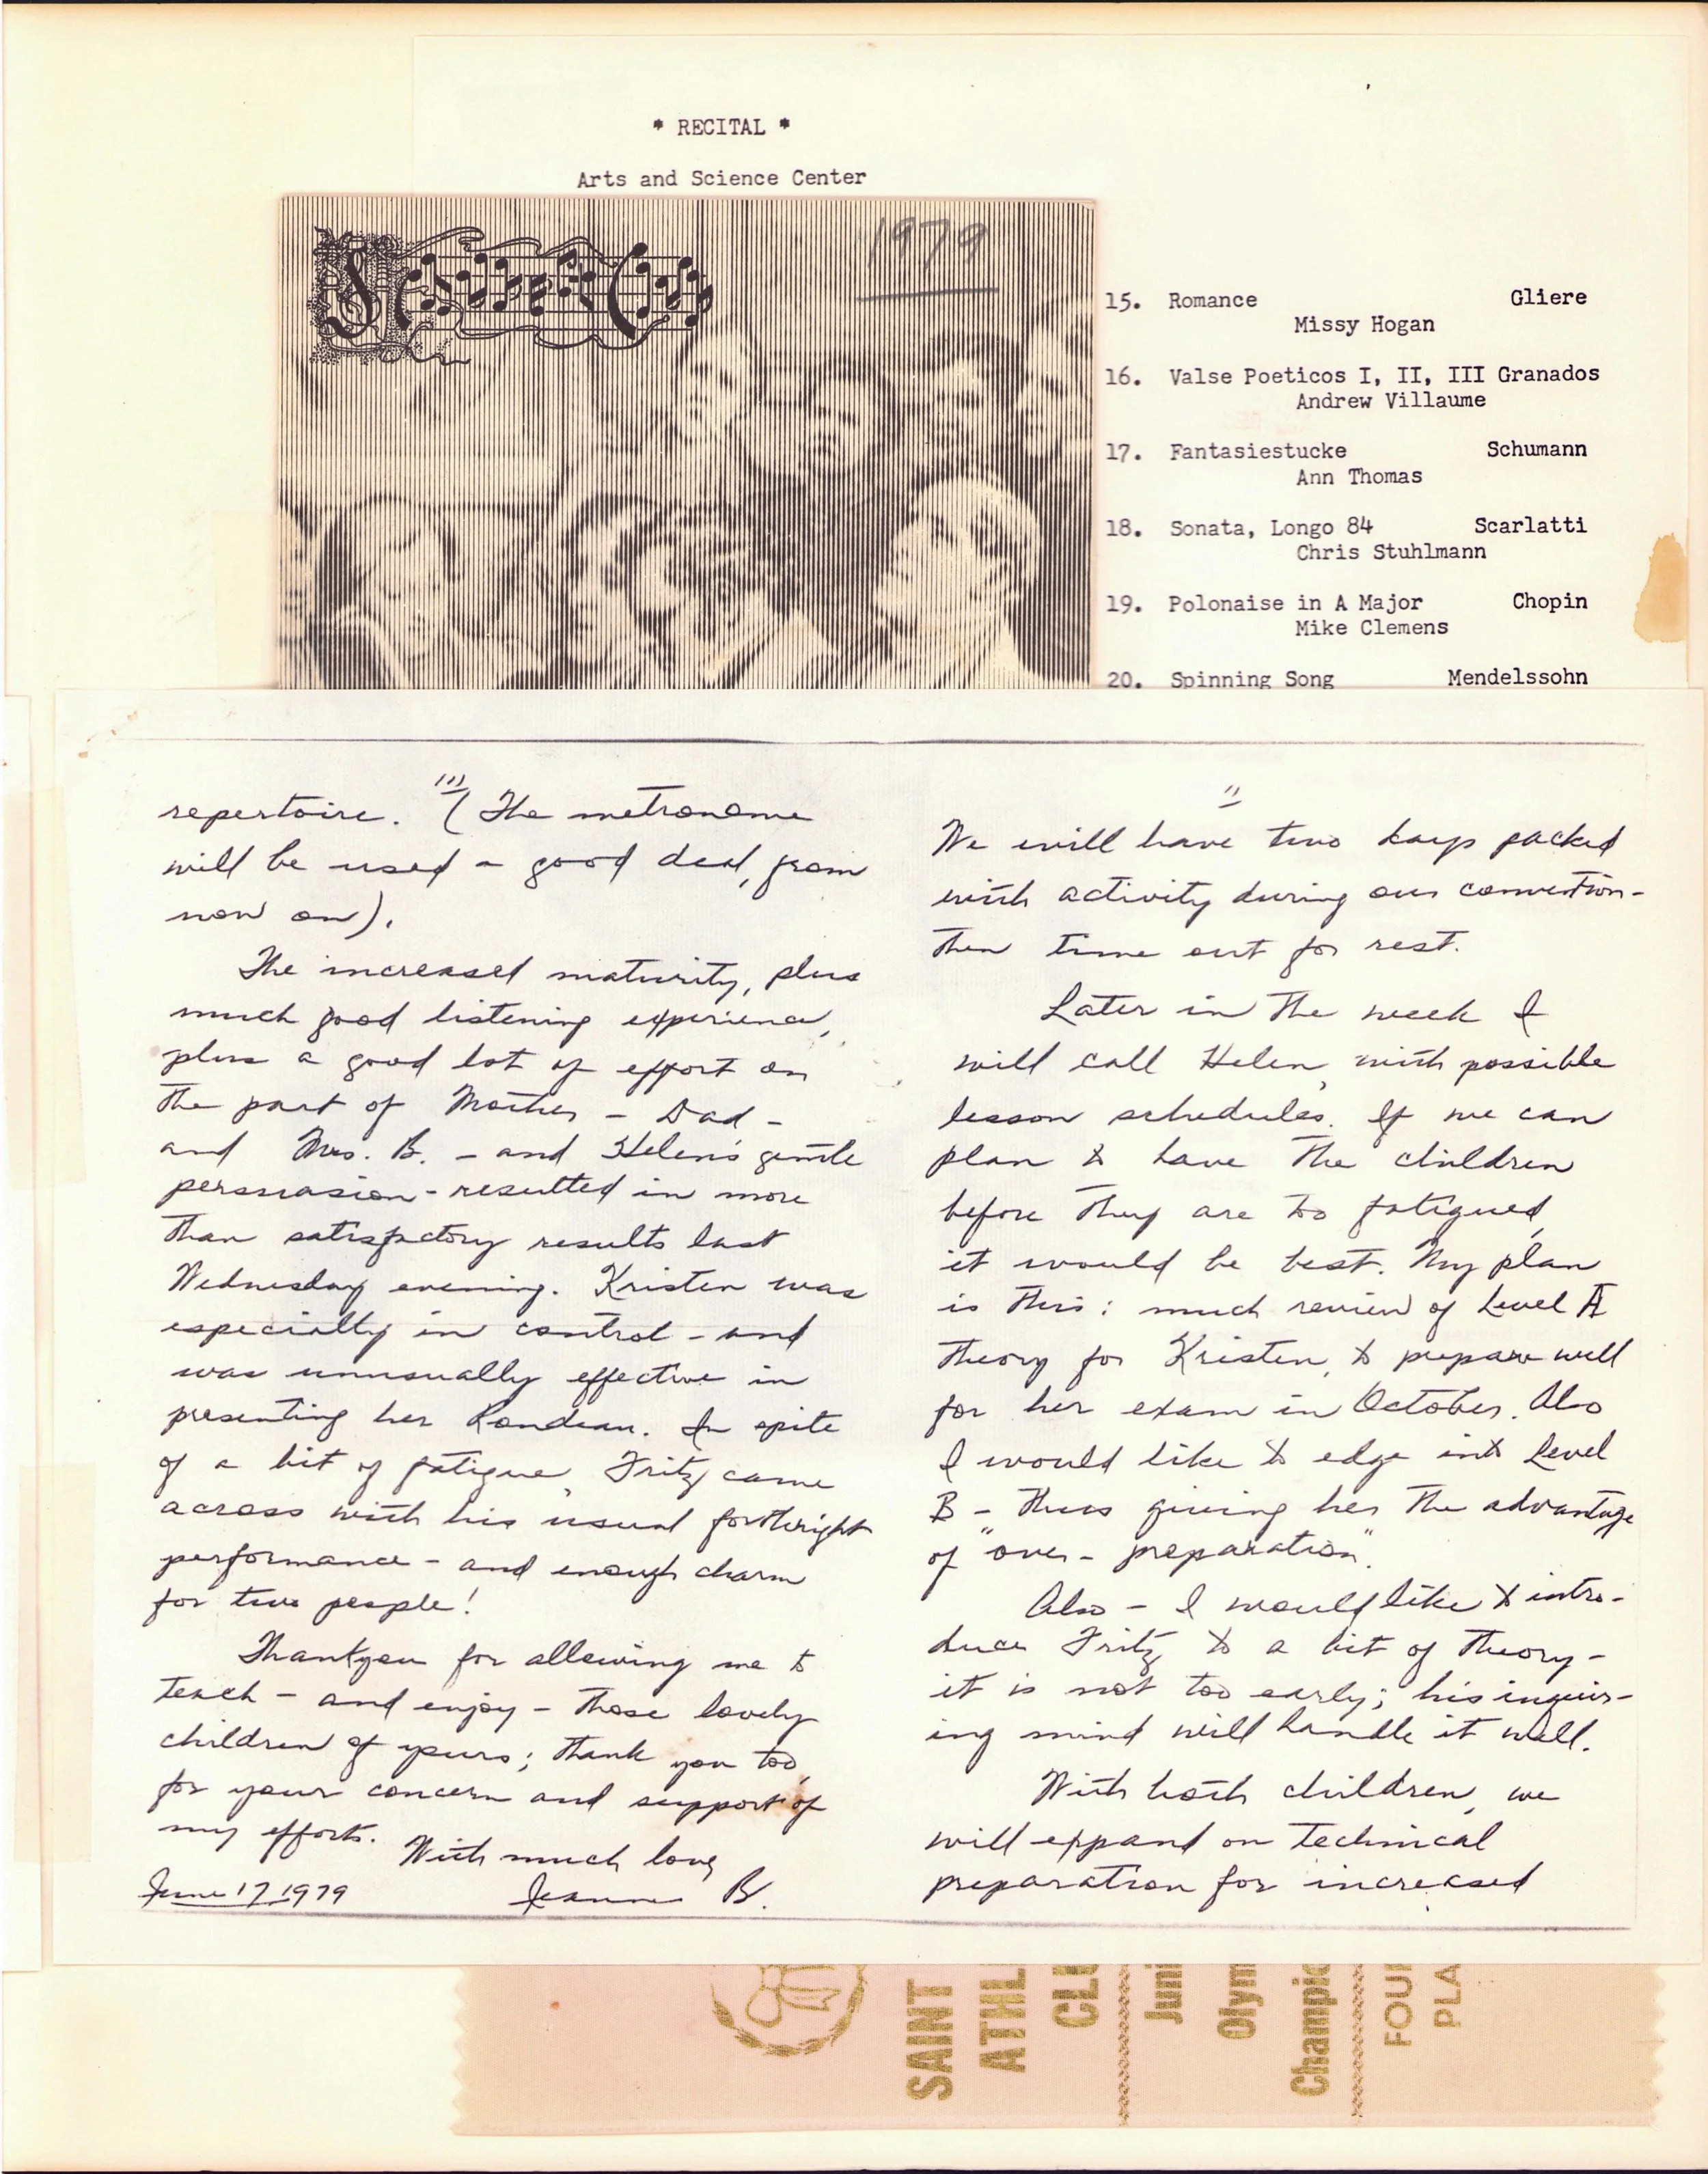 * RECITAL *
Arts and Science Center
1979
15. Romance Gliere
Missy Hogan
16. Valse Poeticos I, II, III Granados
Andrew Villaume
17. Fantasiestucke Schumann
Ann Thomas
18. Sonata, Longo 84 Scarlatti
Chris Stuhlmann
19. Polonaise in A Major Chopin
Mike Clemens
20. Spinning Song Mendelssohn
III
repertoire. (The metronome
will be used a good deal, from
now on).
The increased maturity, plus
much good listening experience,
plus a good lot of effort on
the part of Mother - Dad -
and Mrs. B. - and Helen's gentle
persuasion - resulted in more
than satisfactory results last
Wednesday evening. Kristen was
especially in control - and
was unusually effective in
presenting her Rondeau. In spite
of a bit of fatigue, Fritz came
across with his usual forthright
performance - and enough charm
for two people!
Thankyou for allowing me to
teach - and enjoy - those lovely
children of yours; thank you too,
for your concern and support of
my efforts.
With much love,
June 17, 1979 Jeanne B.
II
We will have two days packed
with activity during our convention -
then time out for rest.
Later in the week I
will call Helen, with possible
lesson schedules. If we can
plan to have the children
before they are too fatigued,
it would be best. My plan
is this: much review of Level A
theory for Kristen, to prepare well
for her exam in October. Also
I would like to edge into Level
B - thus giving her the advantage
of "over-preparation".
Also - I would like to intro-
duce Fritz to a bit of theory -
it is not too early; his inquir-
ing mind will handle it well.
With both children, we
will expand on technical
preparation for increased
SAINT
ATHL
CLU
Juni
Olym
Champio
FOUR
PLA